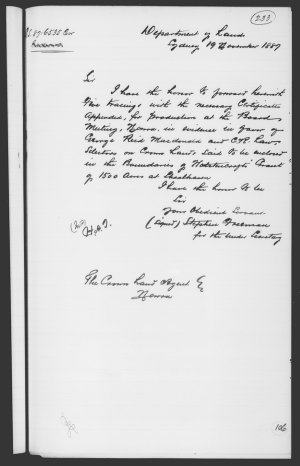 233
Department of Lands
Sydney 19 November 1889
Sir
I have the honor to forward herewith
tracings with the necessary Certificates
Appended, for production at the Board
Meeting, Nowra, in evidence in favor of
George Reid Macdonald and
Selectors on Crown Lands said to be enclosed
in the Boundaries of Grant
of 1500 Acres at Shoalhaven
I have the honor to be
Sir
Your Obedient Servant
(signed) Stephen Freeman
for the Under Secretary
The Crown Land Agent
Nowra
106